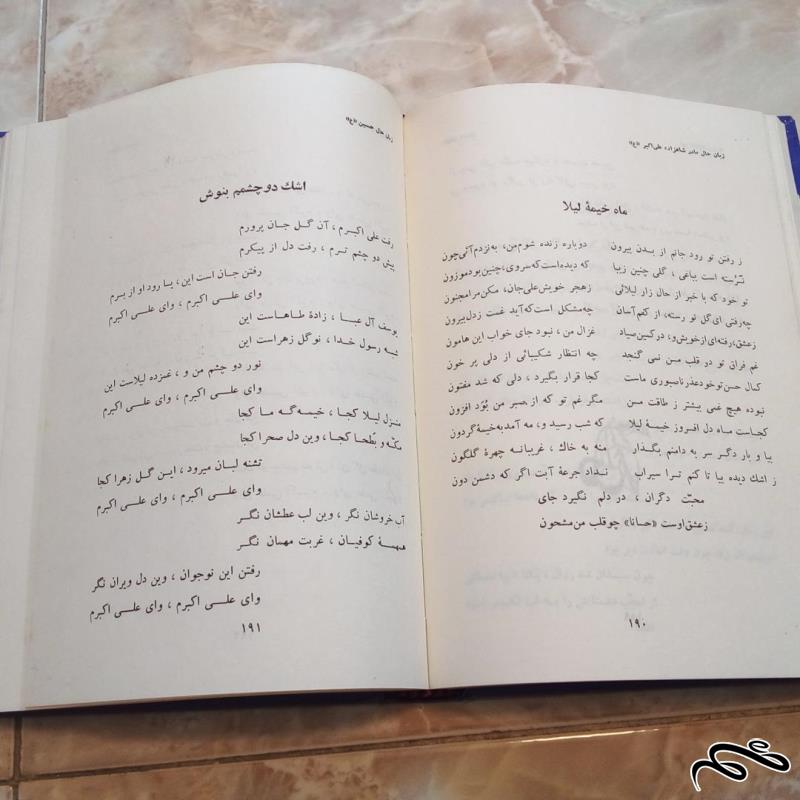 زبان حال مادر شاهزاده علی‌اکبر «ع»
ماه خیمهٔ لیلا
ز رفتن تو رود جانم از بدن بیرون
دوباره زنده شوم من، به‌نزدم آئی چون
نرُسته است بباغی ، گلی چنین زیبا
که دیده است که سروی، چنین بود موزون
تو خود که با خبر از حال زار لیلائی
زهجر خویش علی‌جان، مکن مرا مجنون
چه‌رفتی ای‌گل نو رسته، از کفم آسان
چه مشکل است که آید غمت زدل بیرون
زعشق، رفته‌ای از خویش و، در کمین صیاد
غزال من ، نبود جای خواب این هامون
غم فراق تو در قلب من نمی گنجد
چه انتظار شکیبائی از دلی پر خون
کمال حسن تو خود عذر ناصبوری ماست
کجا قرار بگیرد ، دلی که شد مفتون
نبوده هیچ غمی بیشتر ز طاقت من
مگر غم تو که از صبر من بُوَد افزون
کجاست ماه دل افروز خیمهٔ لیلا
که شب رسید و، مه آمد به‌خیمهٔ گردون
بیا و بار دگر سر به دامنم بگذار
منه به خاك ، غریبانه چهرهٔ گلگون
ز اشك دیده بیا تا کنم ترا سیراب
نداد جرعهٔ آبت اگر که دشمن دون
محبّت دگران ، در دلم نگیرد جای
زعشق اوست «حسانا» چو قلب من مشحون
۱۹۰
زبان حال حسین «ع»
اشك دو چشمم بنوش
رفت علی اکبرم ، آن گل جان پرورم
پیش دو چشم ترم ، رفت دل از پیکرم
رفتن جان است این ، یا رود او از برم
وای علی اکبرم ، وای علی اکبرم
یوسف آل عبا ، زادهٔ طاهاست این
شبه رسول خدا ، نوگل زهراست این
نور دو چشم من و ، غمزده لیلاست این
وای علی اکبرم ، وای علی اکبرم
منزل لیلا کجا ، خیمه‌گه ما کجا
مکّه و بَطحا کجا ، وین دل صحرا کجا
تشنه لبان میرود ، این گل زهرا کجا
وای علی اکبرم ، وای علی اکبرم
آب خروشان نگر ، وین لب عطشان نگر
همهمهٔ کوفیان ، غربت مهمان نگر
رفتن این نوجوان ، وین دل ویران نگر
وای علی اکبرم ، وای علی اکبرم
۱۹۱